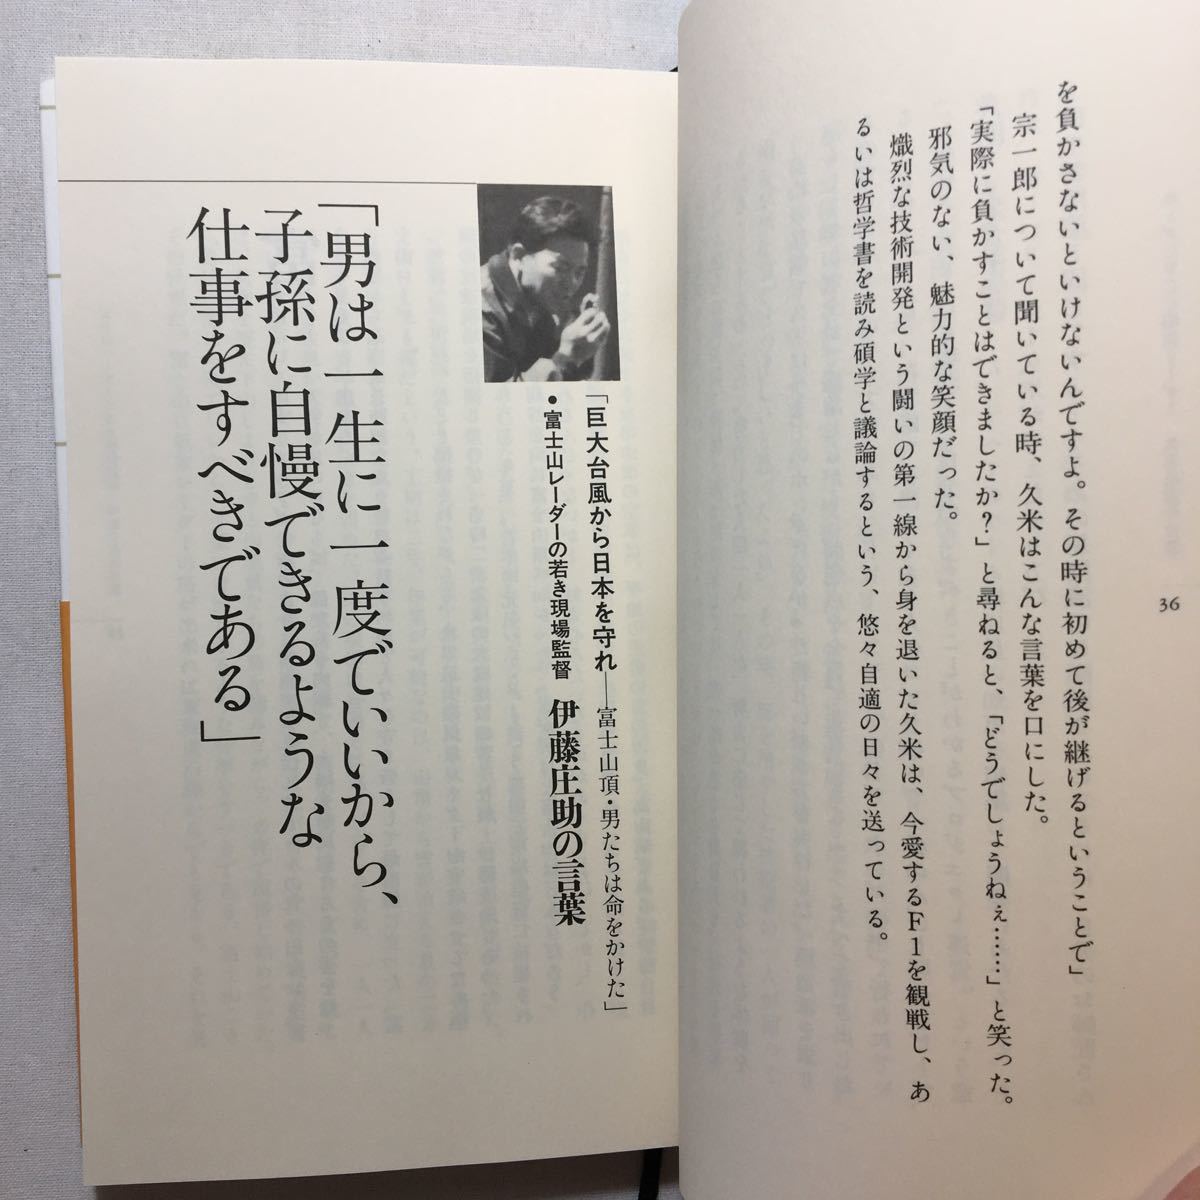 を負かさないといけないんですよ。その時に初めて後が継げるということで」
宗一郎について聞いている時、久米はこんな言葉を口にした。
「実際に負かすことはできましたか?」と尋ねると、「どうでしょうねぇ……」と笑った。
邪気のない、魅力的な笑顔だった。
熾烈な技術開発という闘いの第一線から身を退いた久米は、今愛するF1を観戦し、あ
るいは哲学書を読み碩学と議論するという、悠々自適の日々を送っている。
36
「巨大台風から日本を守れ――富士山頂・男たちは命をかけた」
・富士山レーダーの若き現場監督 伊藤庄助の言葉
「男は一生に一度でいいから、
子孫に自慢できるような
仕事をすべきである」